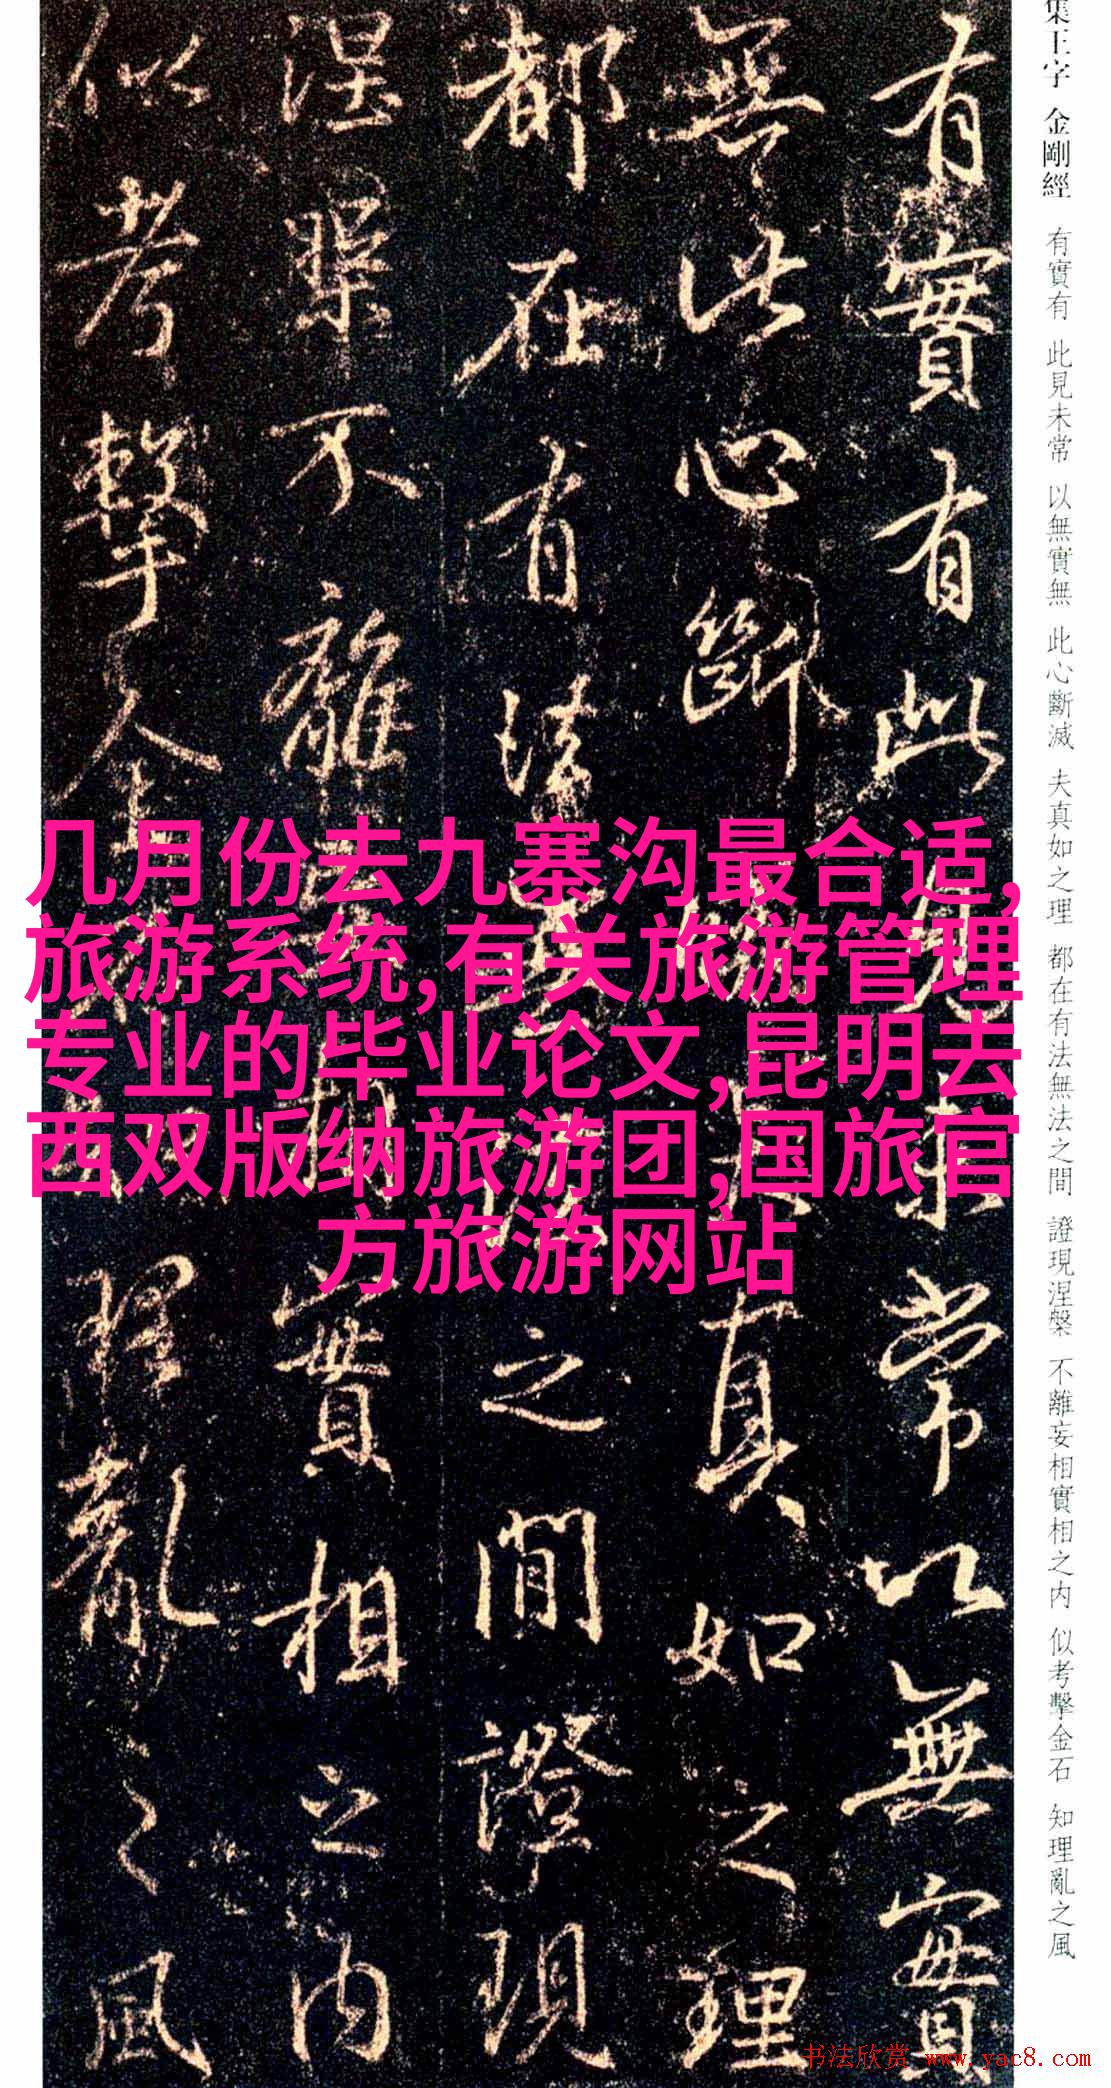 集王字 金剛經 有實有 此見未常 以無實無 此心斷滅 夫真如之理 都在有法無法之間 證現涅槃 不離妄相實相之内 似考擊金石 知理亂之風
有實有此見未常以無實
無此心斷滅夫真如之理
都在有法無法之間證現
涅槃不離妄相實相之内
似考擊金石知理亂之風
几月份去九寨沟最合适,
旅游系统,有关旅游管理
专业的毕业论文,昆明去
西双版纳旅游团,国旅官
方旅游网站
书法欣赏 www.yac8.com